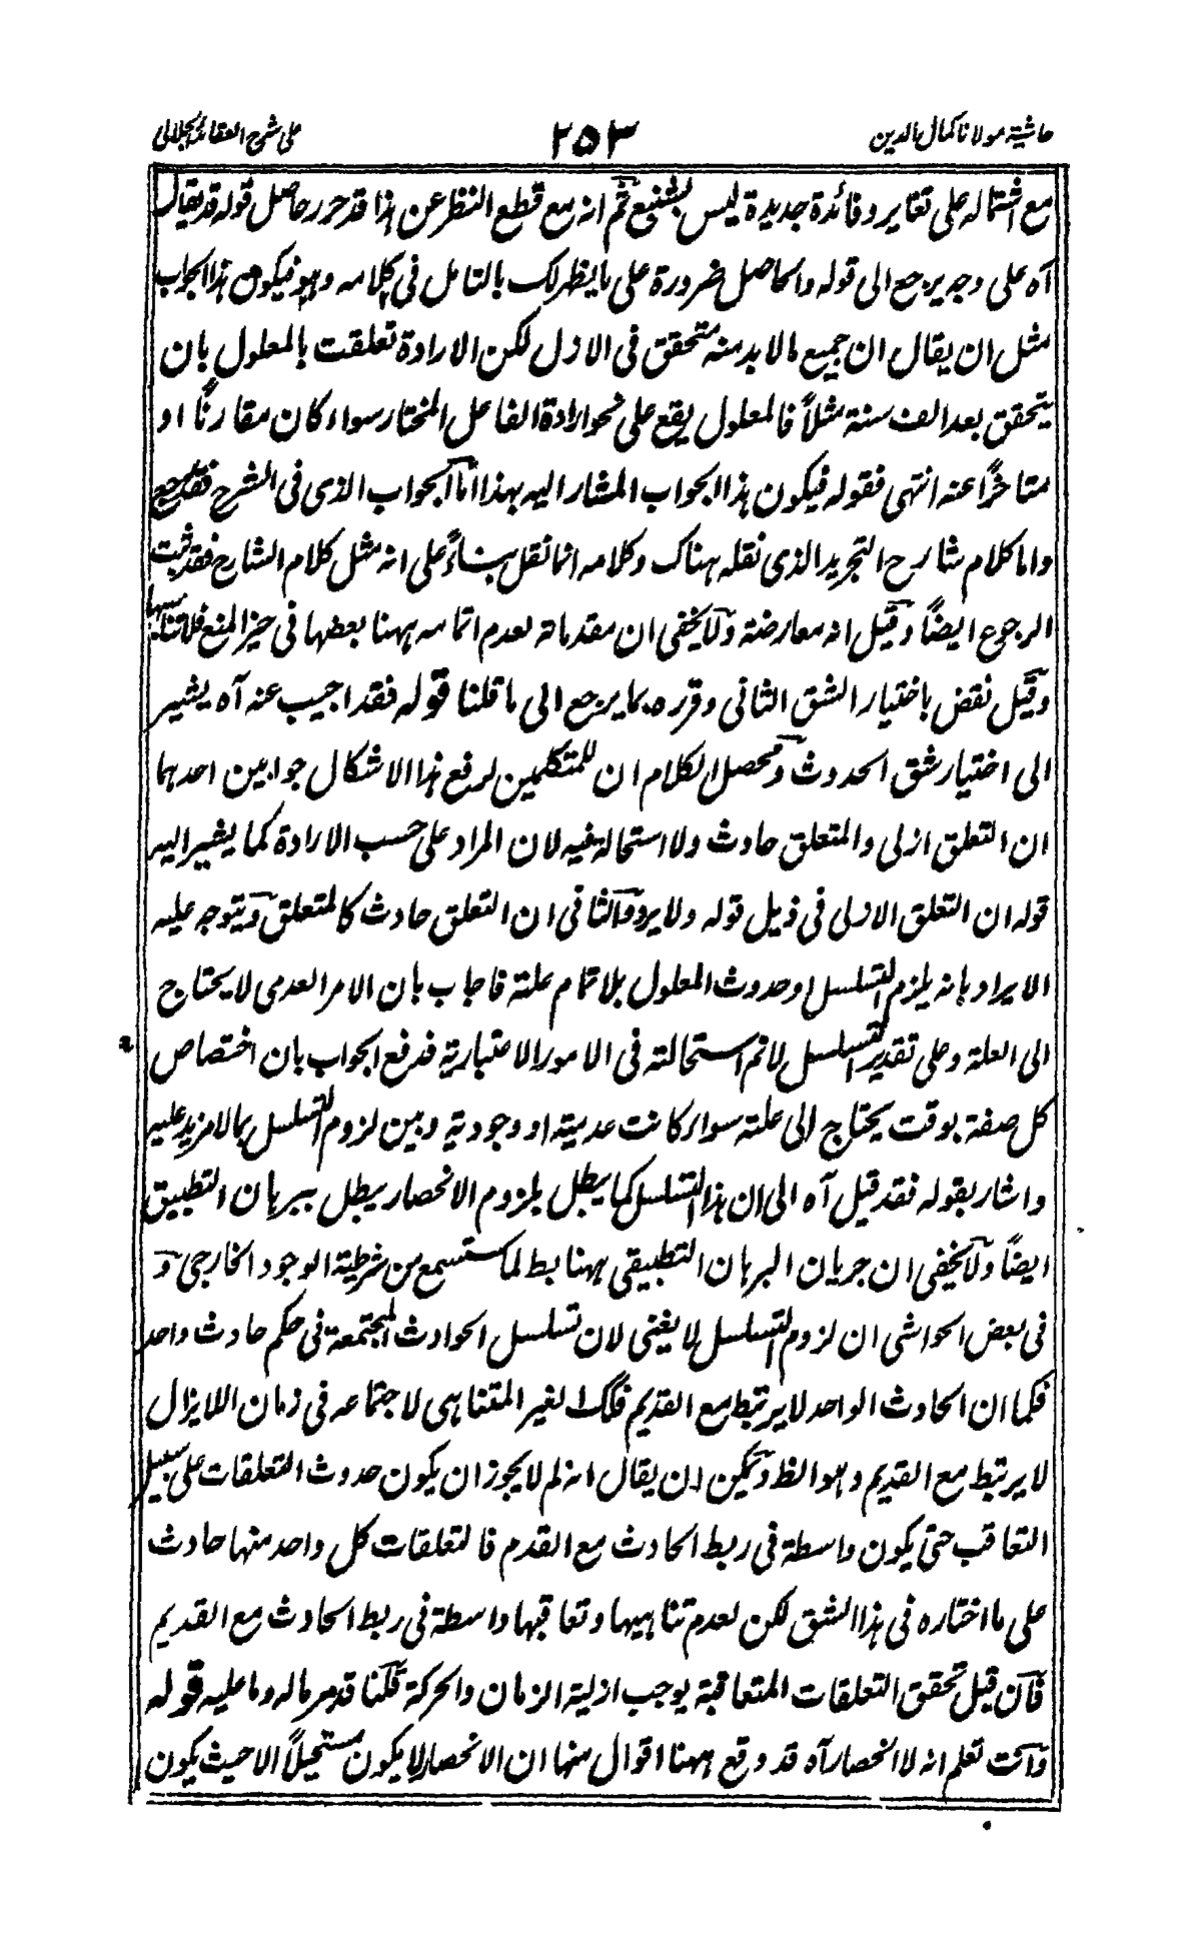 حاشية مولانا كمال الدين ٢٥٣ على شرح العقائد الجلالى
مع اشتماله على تغاير وفائدة جديدة ليس بشنيع ثم انه مع قطع النظر عن هذا قد حرر حاصل قوله قد يقال
آه على وجه يرجع الى قوله والحاصل ضرورة على ما يظهر لك بالتامل فى كلامه وهو فيكون هذا الجواب
مثل ان يقال ان جميع ما لا بد منه متحقق فى الازل لكن الارادة تعلقت بالمعلول بان
يتحقق بعد الف سنة مثلاً فالمعلول يقع على نحو ارادة الفاعل المختار سواء كان مقارنًا او
متاخرًا عنه انتهى فقوله فيكون هذا الجواب المشار اليه بهذا اما الجواب الذى فى الشرح فقد رجع
واما كلام شارح التجريد الذى نقله هناك وكلامه انما نقل بناءً على انه مثل كلام الشارح فقد ثبت
الرجوع ايضاً وقيل انه معارضة ولا يخفى ان مقدماته لعدم اتمامه ههنا بعضها فى حيز المنع فلا تناسبها
وقيل نقض باختيار الشق الثانى وقرره بما يرجع الى ما قلنا قوله فقد اجيب عنه آه يشير
الى اختيار شق الحدوث ومحصل الكلام ان للمتكلمين لرفع هذا الاشكال جوابين احدهما
ان التعلق ازلى والمتعلق حادث ولا استحالة فيه لان المراد على حسب الارادة كما يشير اليه
قوله ان التعلق الازلى فى ذيل قوله ولا يرد والثانى ان التعلق حادث كالمتعلق ويتوجه عليه
الايراد بانه يلزم التسلسل او حدوث المعلول بلا تمام علته فاجاب بان الامر العدمى لا يحتاج
الى العلة وعلى تقدير التسلسل لا نم استحالته فى الامور الاعتبارية فدفع الجواب بان اختصاص
كل صفة بوقت يحتاج الى علته سواء كانت عدمية او وجودية وبين لزوم التسلسل بما لا مزيد عليه
واشار بقوله فقد قيل آه الى ان هذا التسلسل كما يبطل بلزوم الانحصار يبطل ببرهان التطبيق
ايضاً ولا يخفى ان جريان البرهان التطبيقى ههنا بط لما ستسمع من شرطية الوجود الخارجى و
فى بعض الحواشى ان لزوم التسلسل لا يغنى لان تسلسل الحوادث المجتمعة فى حكم حادث واحد
فكما ان الحادث الواحد لا يرتبط مع القديم فكك الغير المتناهى لاجتماعه فى زمان اللايزال
لا يرتبط مع القديم وهو الظ ويمكن ان يقال انه لم لا يجوز ان يكون حدوث التعلقات على سبيل
التعاقب حتى يكون واسطة فى ربط الحادث مع القدم فالتعلقات كل واحد منها حادث
على ما اختاره فى هذا الشق لكن لعدم تناهيها وتعاقبها واسطة فى ربط الحادث مع القديم
فان قيل تحقق التعلقات المتعاقبة يوجب ازلية الزمان والحركة قلنا قد مر ماله وما عليه قوله
وانت تعلم انه لا انحصار آه قد وقع ههنا اقوال منها ان الانحصار لا يكون مستحيلاً الا حيث يكون